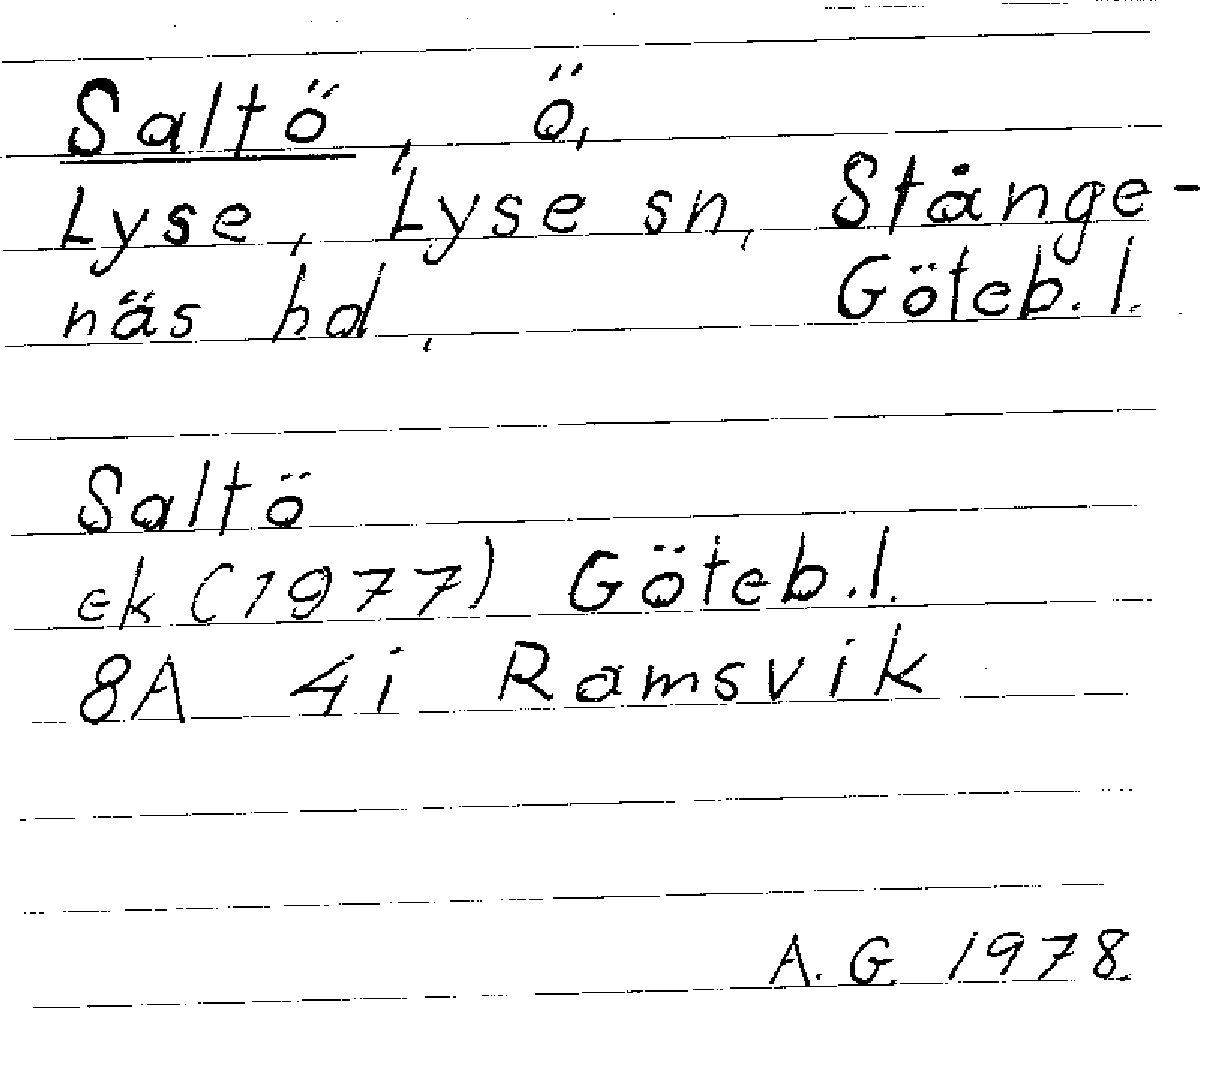 Saltö, ö,
Lyse, Lyse sn, Stånge-
näs hd, Göteb. l.
Saltö
ek (1977) Göteb. l.
8A 4i Ramsvik
A. G. 1978